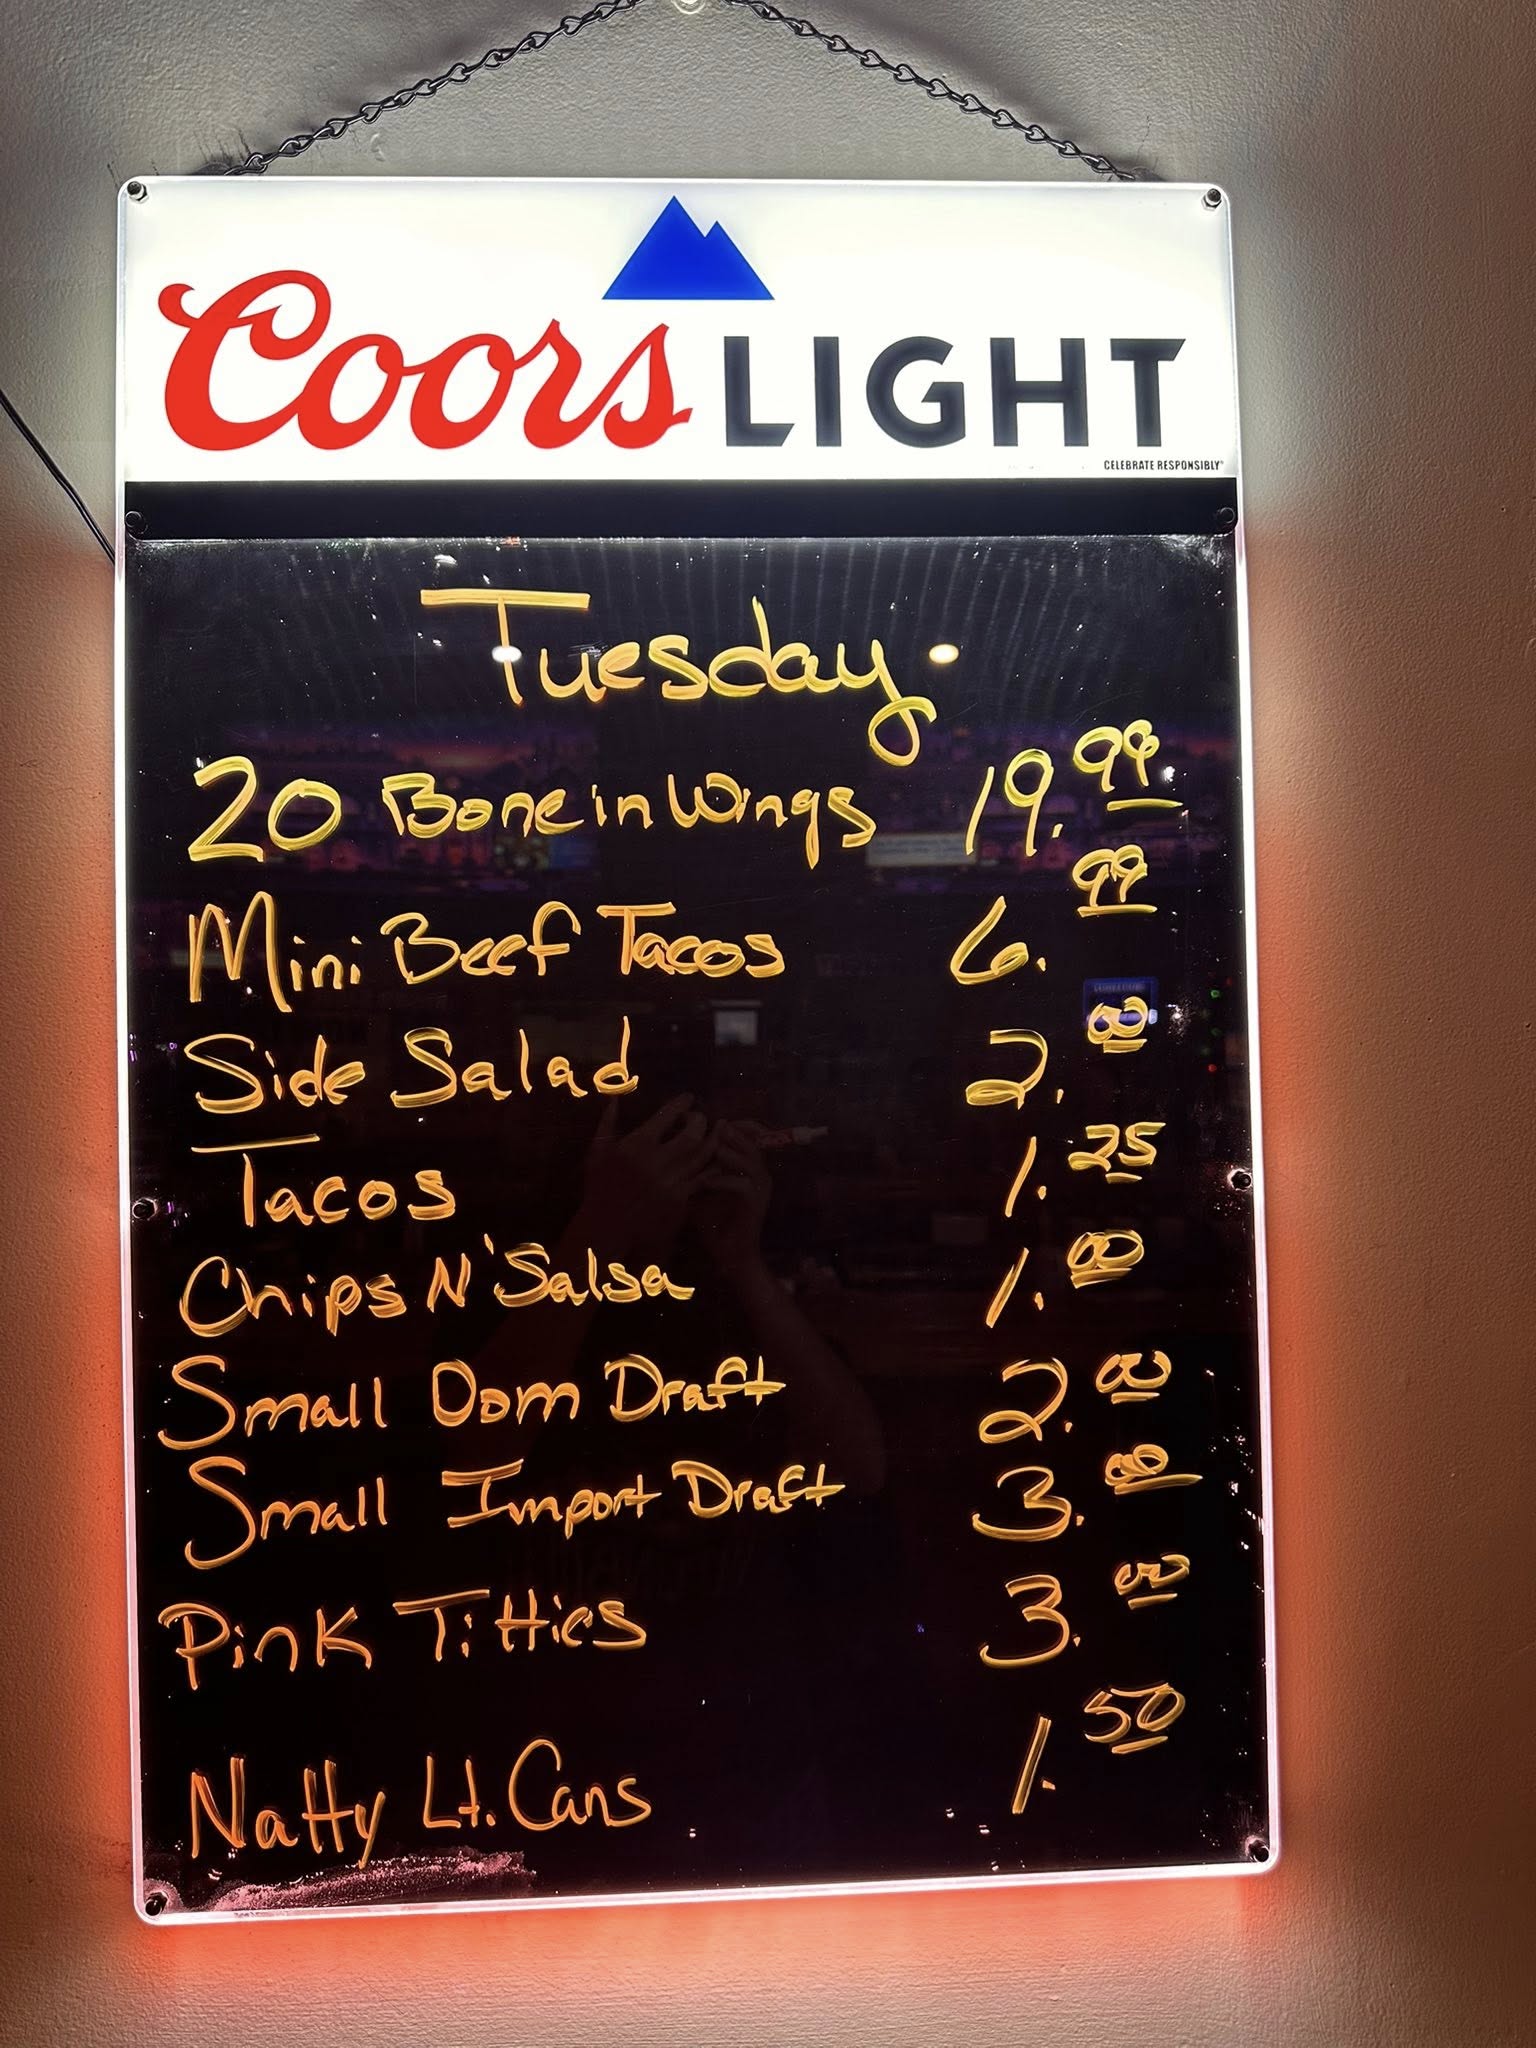 Coors LIGHT
CELEBRATE RESPONSIBLY®
Tuesday
20 Bone in Wings 19.99
Mini Beef Tacos 6.99
Side Salad 2.00
Tacos 1.25
Chips N' Salsa 1.00
Small Dom Draft 2.00
Small Import Draft 3.00
Pink Titties 3.00
Natty Lt. Cans 1.50